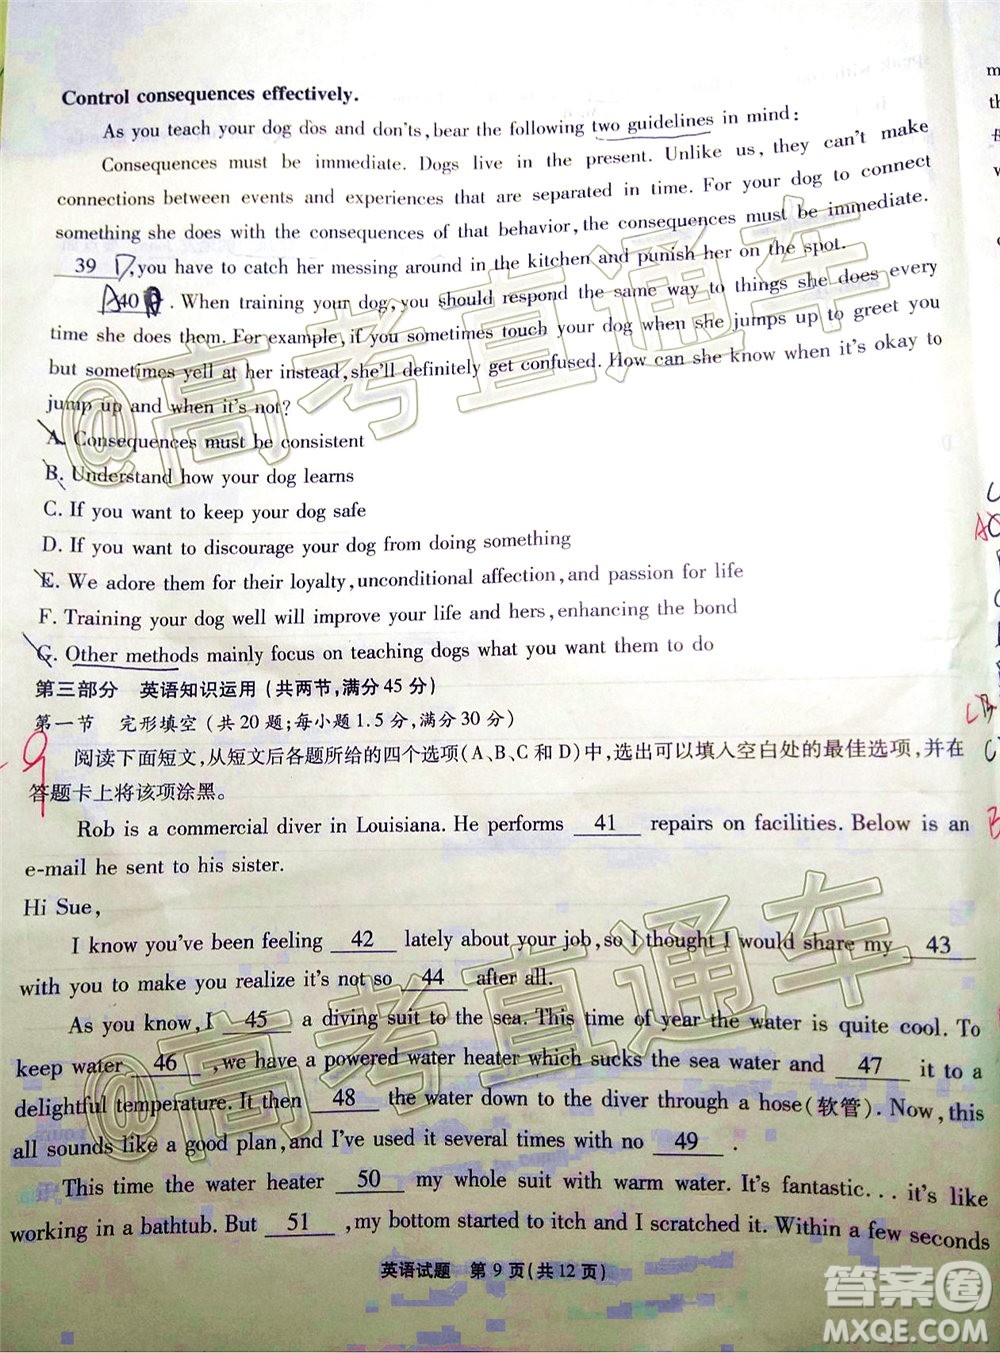 Control consequences effectively.
As you teach your dog dos and don'ts, bear the following two guidelines in mind:
Consequences must be immediate. Dogs live in the present. Unlike us, they can't make
connections between events and experiences that are separated in time. For your dog to connect
something she does with the consequences of that behavior, the consequences must be immediate.
39 D, you have to catch her messing around in the kitchen and punish her on the spot.
A 40 . When training your dog, you should respond the same way to things she does every
time she does them. For example, if you sometimes touch your dog when she jumps up to greet you
but sometimes yell at her instead, she'll definitely get confused. How can she know when it's okay to
jump up and when it's not?
A. Consequences must be consistent
B. Understand how your dog learns
C. If you want to keep your dog safe
D. If you want to discourage your dog from doing something
E. We adore them for their loyalty, unconditional affection, and passion for life
F. Training your dog well will improve your life and hers, enhancing the bond
G. Other methods mainly focus on teaching dogs what you want them to do
第三部分 英语知识运用(共两节,满分 45 分)
第一节 完形填空(共 20 题;每小题 1.5 分,满分 30 分)
-9
阅读下面短文,从短文后各题所给的四个选项(A、B、C 和 D)中,选出可以填入空白处的最佳选项,并在
答题卡上将该项涂黑。
Rob is a commercial diver in Louisiana. He performs 41 repairs on facilities. Below is an
e-mail he sent to his sister.
Hi Sue,
I know you've been feeling 42 lately about your job, so I thought I would share my 43
with you to make you realize it's not so 44 after all.
As you know, I 45 a diving suit to the sea. This time of year the water is quite cool. To
keep water 46 , we have a powered water heater which sucks the sea water and 47 it to a
delightful temperature. It then 48 the water down to the diver through a hose(软管). Now, this
all sounds like a good plan, and I've used it several times with no 49 .
This time the water heater 50 my whole suit with warm water. It's fantastic... it's like
working in a bathtub. But 51 , my bottom started to itch and I scratched it. Within a few seconds
英语试题 第 9 页(共 12 页)
@高考直通车
@高考直通车
答案圈
MXQE.COM